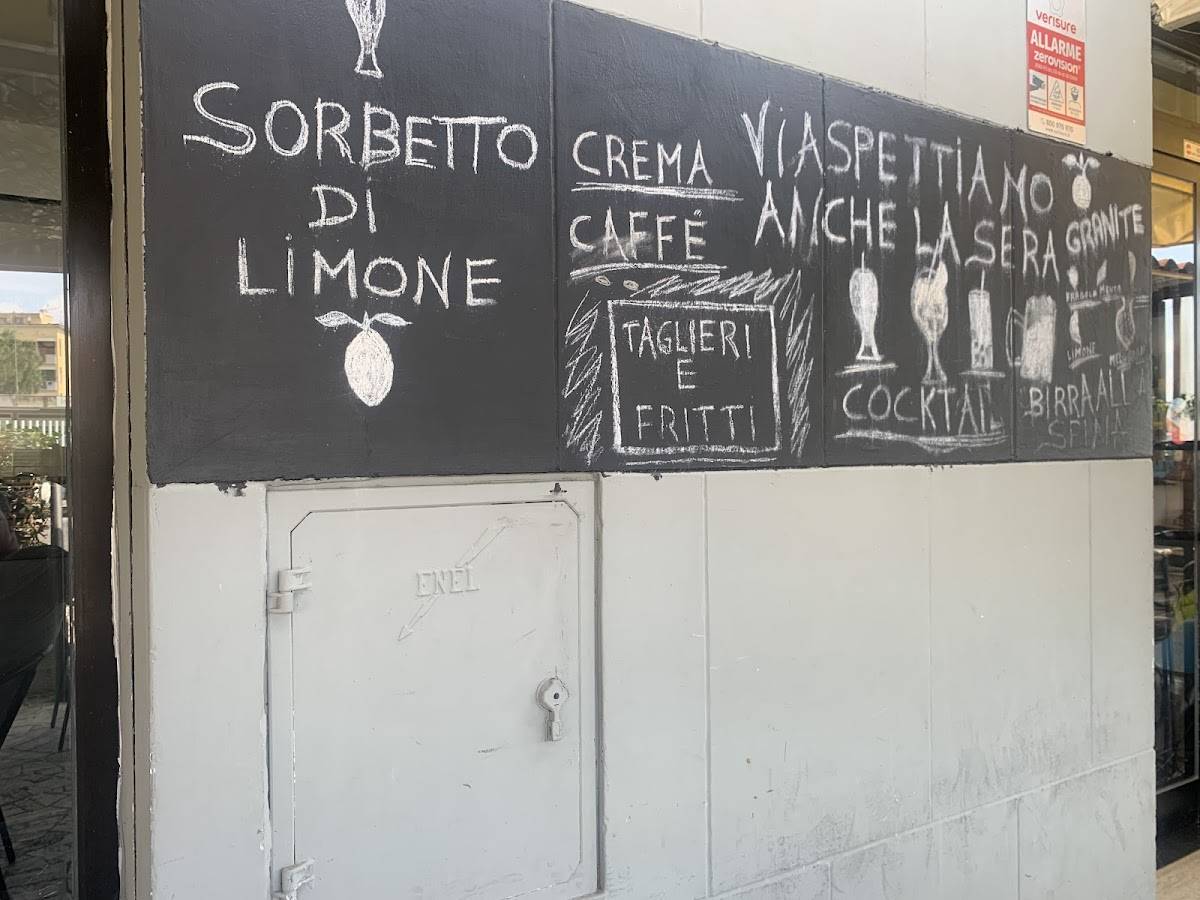 SORBETTO
DI
LIMONE
CREMA
CAFFÉ
TAGLIERI
E
FRITTI
VI ASPETTIAMO
ANCHE LA SERA
COCKTAIL
BIRRA ALLA
SPINA
GRANITE
FRAGOLA MENTA
LIMONE
verisure
ALLARME
zerovision
ENEL